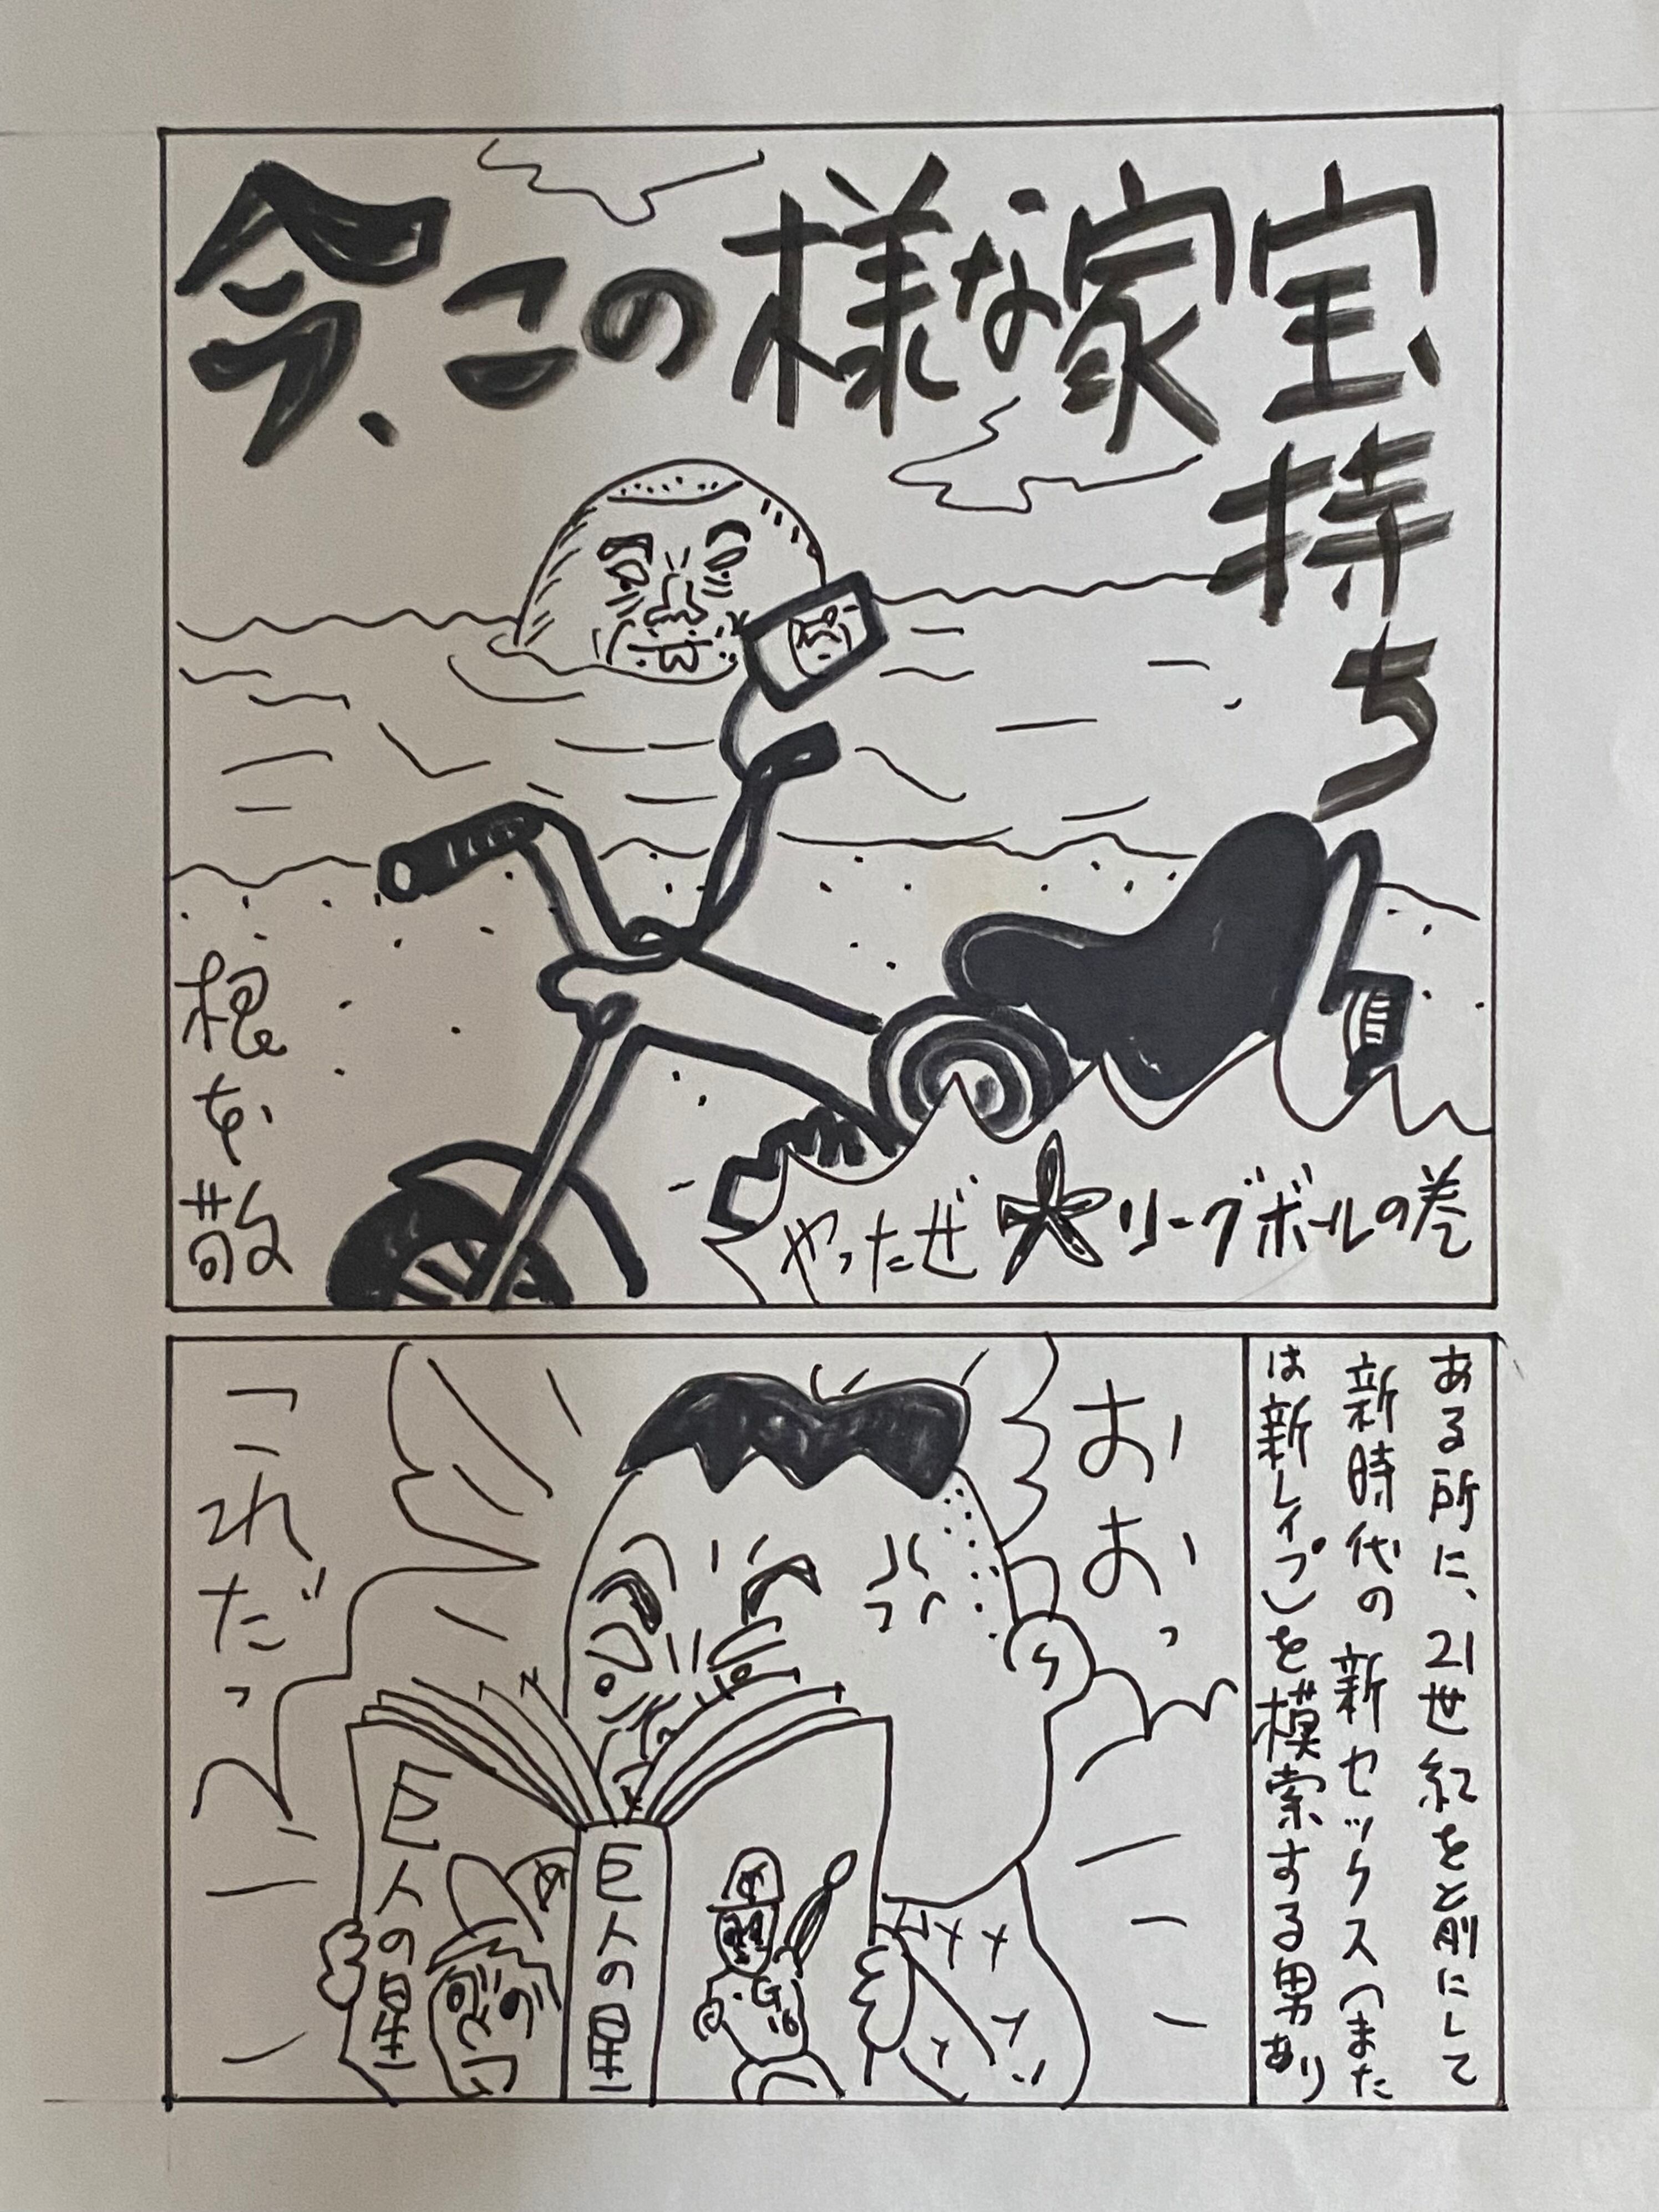 今、この様な家宝
持ち
根を
敬
やったぜ大リーグボールの巻
ある所に、21世紀をと前にして
新時代の新セックス(また
は新レイプ)を模索する男あり
おおっ
これだっ
巨人の星
巨人の星
G
16